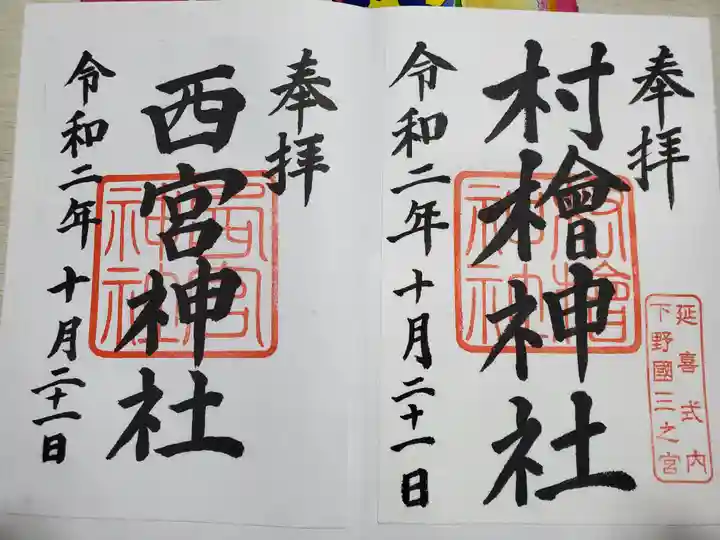 奉拝
村檜神社
令和二年十月二十一日
延喜式内
下野國三之宮
奉拝
西宮神社
令和二年十月二十一日
西宮
神社